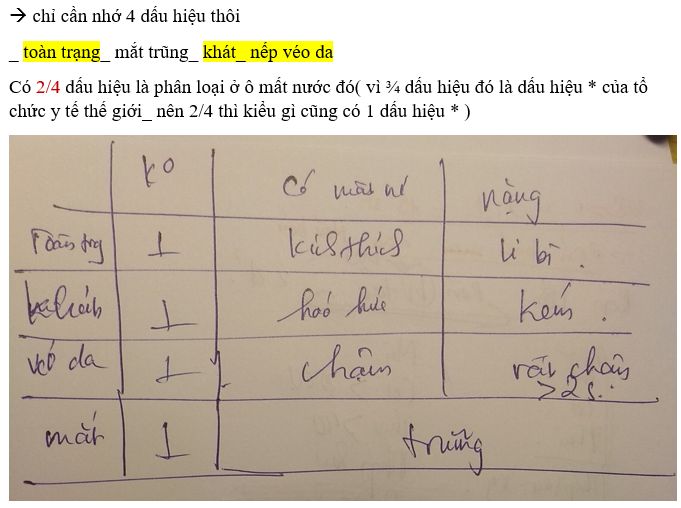 → chỉ cần nhớ 4 dấu hiệu thôi
_ toàn trạng_ mắt trũng_ khát_ nếp véo da
Có 2/4 dấu hiệu là phân loại ở ô mất nước đó( vì ¾ dấu hiệu đó là dấu hiệu * của tổ
chức y tế thế giới_ nên 2/4 thì kiểu gì cũng có 1 dấu hiệu * )
Ko Có mất nc nặng
Toàn trg 1 kích thích li bì.
khát 1 háo hức kém.
véo da 1 chậm rất chậm
>2s.
mắt 1 trũng